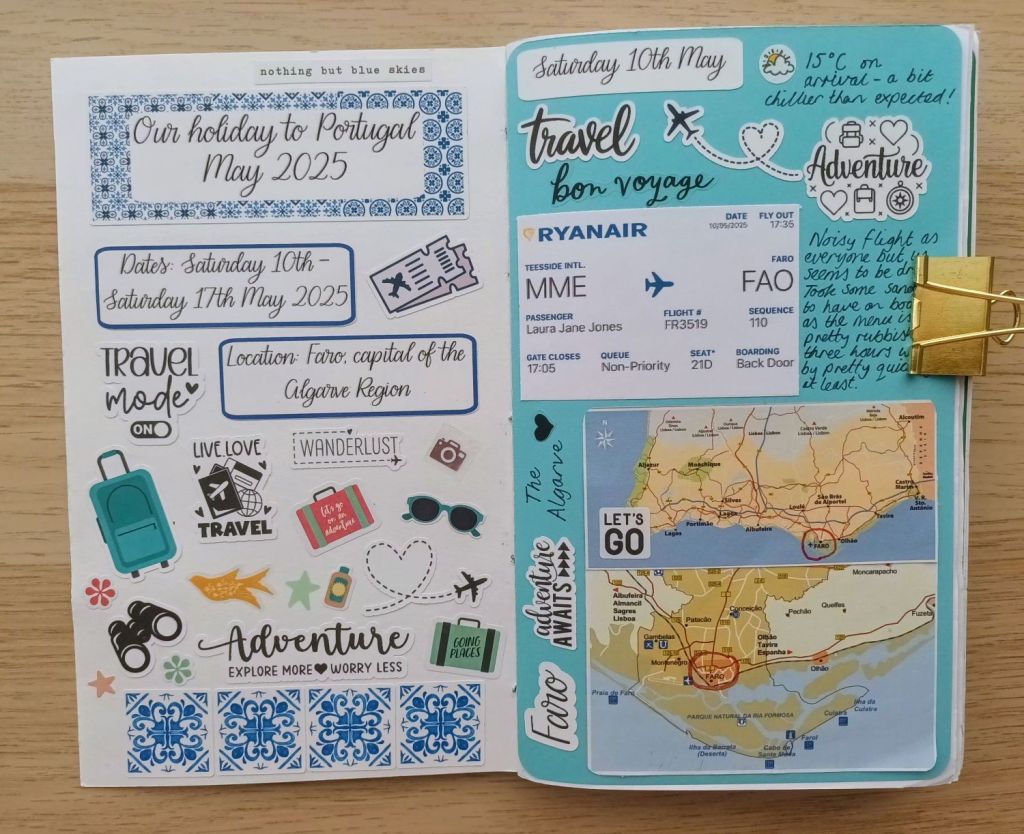 nothing but blue skies
Our holiday to Portugal
May 2025
Dates: Saturday 10th –
Saturday 17th May 2025
Location: Faro, capital of the
Algarve Region
TRAVEL
mode
ON
LIVE LOVE
TRAVEL
WANDERLUST
let's go
on an
adventure
Adventure
EXPLORE MORE WORRY LESS
GOING
PLACES
Saturday 10th May
15°C on
arrival - a bit
chillier than expected!
travel
bon voyage
Adventure
RYANAIR
DATE
10/05/2025
FLY OUT
17:35
TEESSIDE INTL.
MME
FARO
FAO
PASSENGER
Laura Jane Jones
FLIGHT #
FR3519
SEQUENCE
110
GATE CLOSES
17:05
QUEUE
Non-Priority
SEAT*
21D
BOARDING
Back Door
Noisy flight as
everyone but us
seems to be
Took some
to have on
as the menu is
pretty rubbish
three hours
by pretty
at least.
The
Algarve
adventure
AWAITS
Faro
LET'S
GO
N
Alcoutim
Aljezur
Monchique
Silves
Lagoa
Portimão
Lagos
Albufeira
Loulé
São Brás
de Alportel
Tavira
Castro
Marim
V. R.
Sto.
António
Olhão
FARO
Albufeira
Almancil
Sagres
Lisboa
Moncarapacho
Patacão
Conceição
Pechão
Quelfes
Fuzeta
Gambelas
Montenegro
Olhão
Tavira
Espanha
FARO
Olhão
Praia de Faro
PARQUE NATURAL DA RIA FORMOSA
Ilha da Barreta
(Deserta)
Cabo de
Santa Maria
Farol
Culatra
Ilha da
Culatra